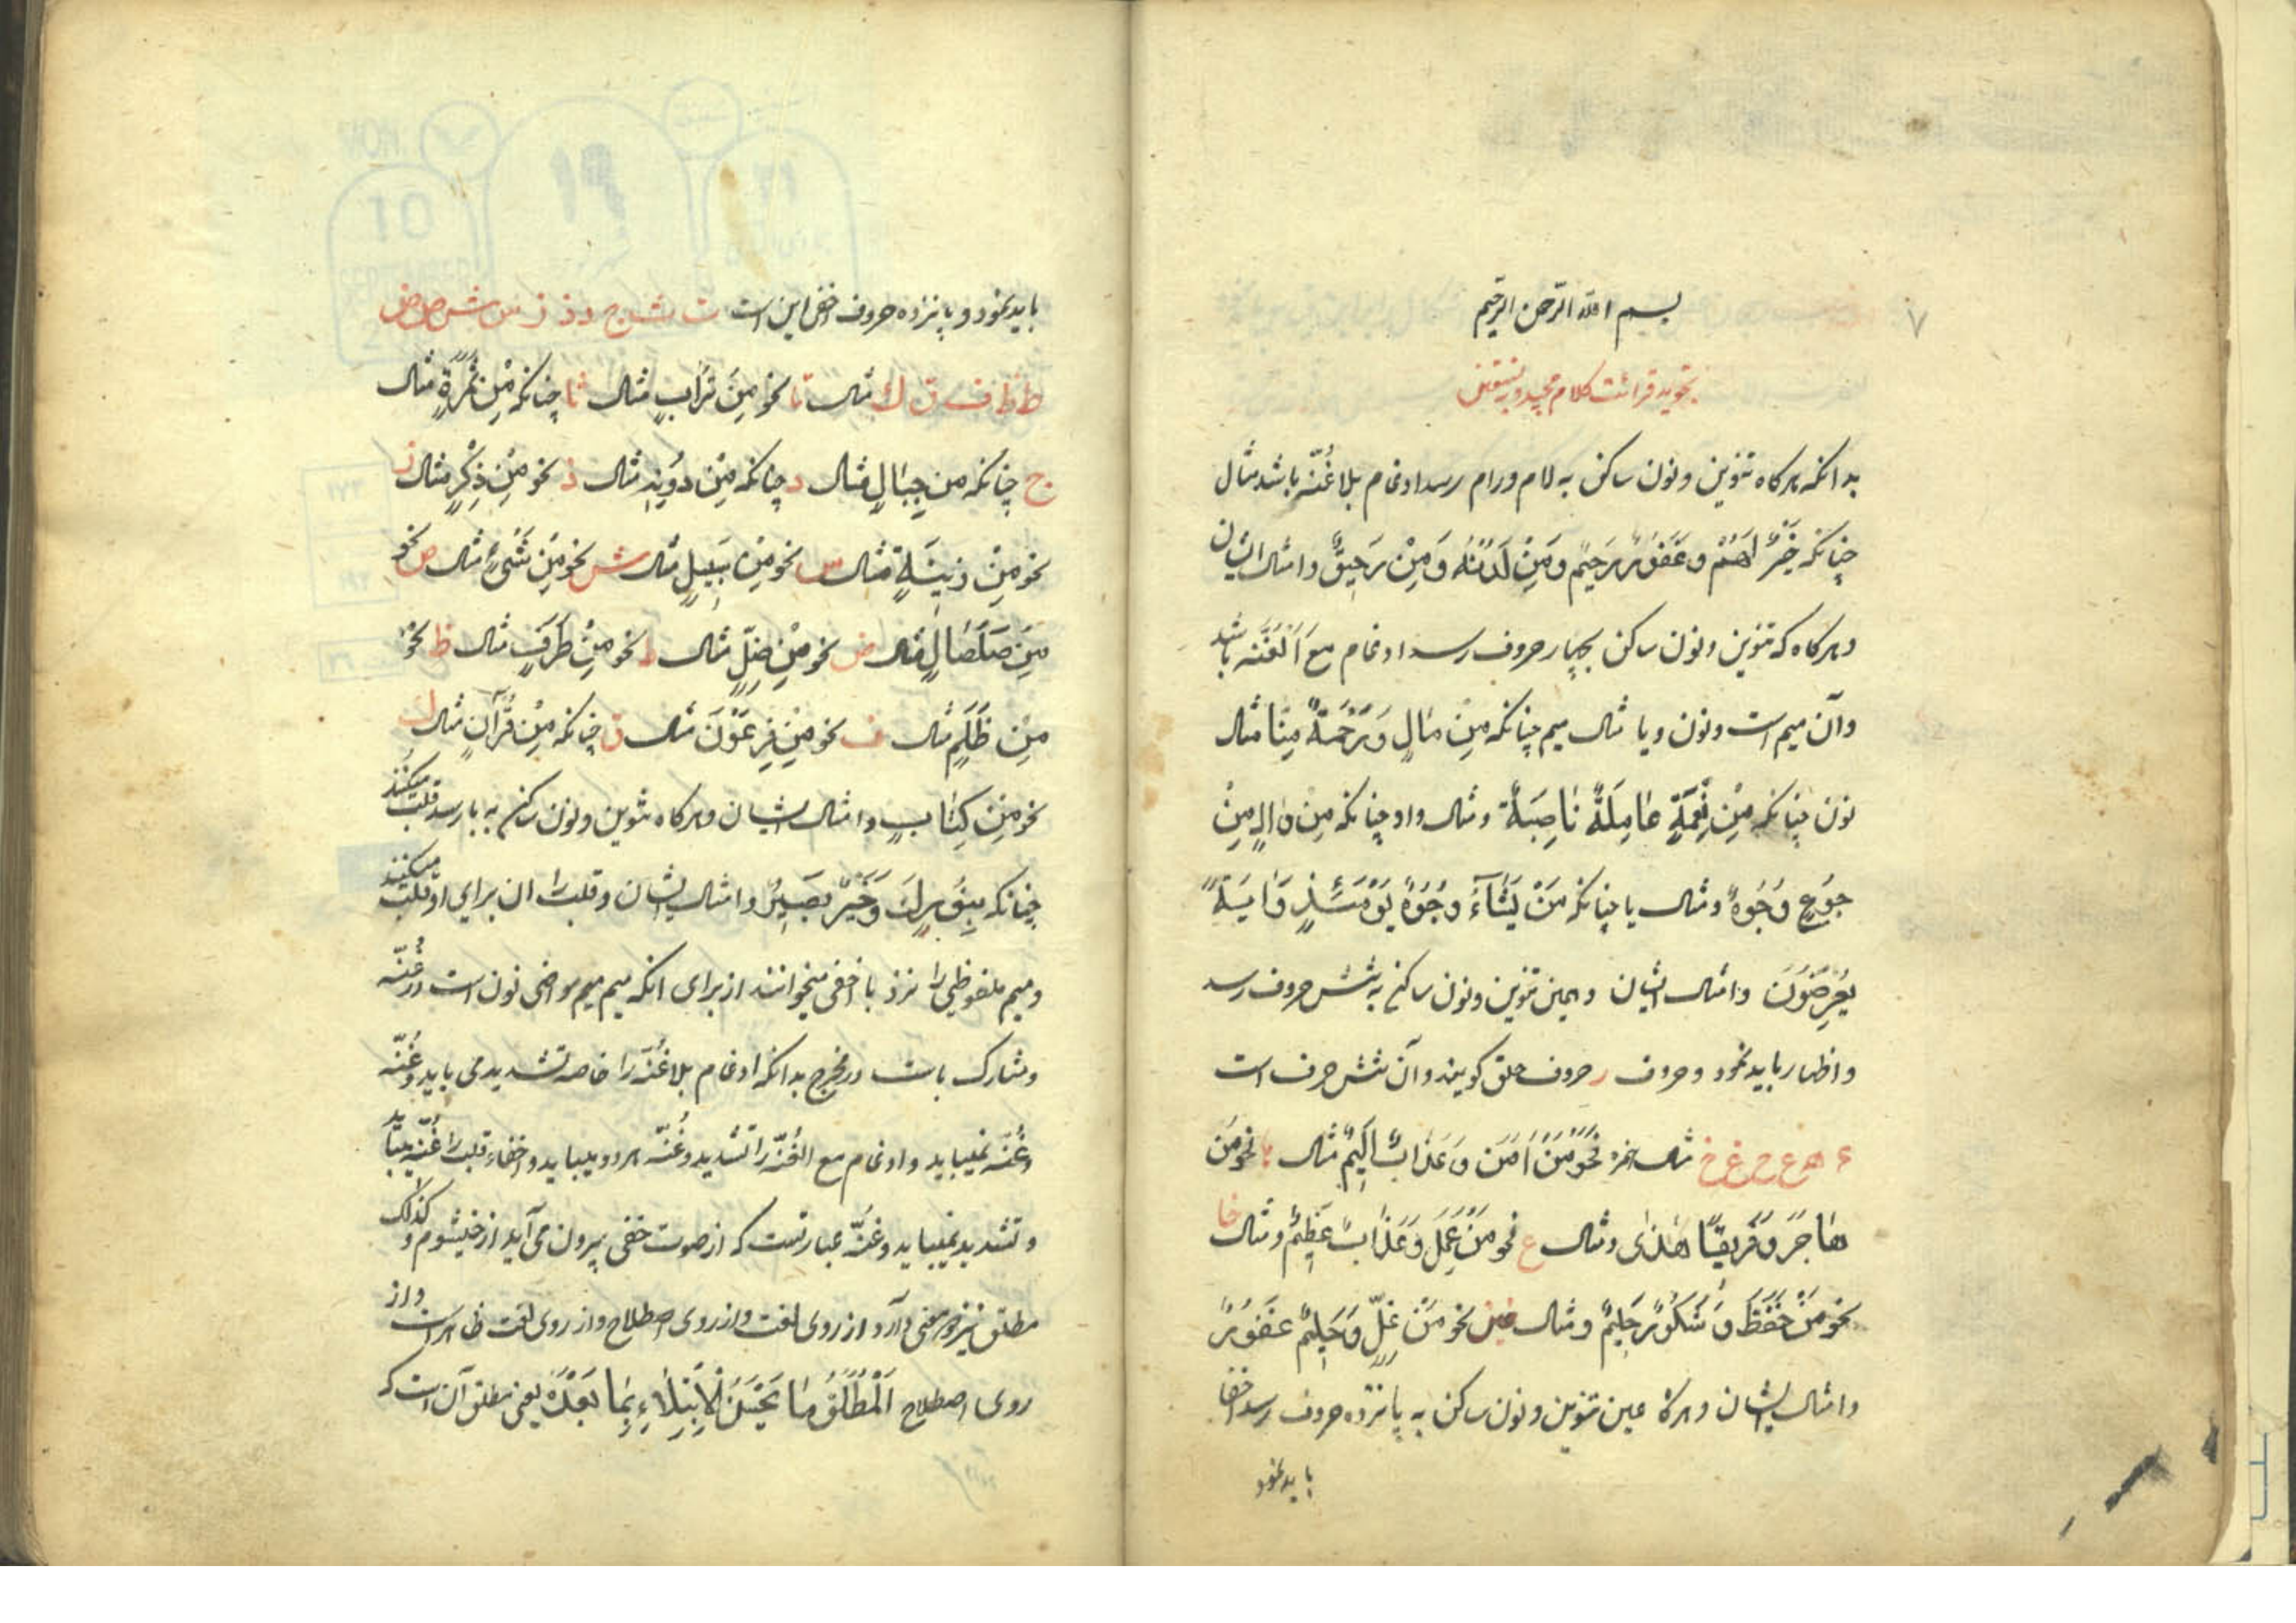 ۷
بسم الله الرحمن الرحیم
تجوید قرائت کلام مجید
بدانکه هرکاه تنوین و نون ساکن به لام و را رسد ادغام بلا غُنّه باشد مثال
چنانکه خَیْرٌ لَهُمْ و غَفُورٌ رَحِیمٌ وَ مِنْ لَدُنْهُ وَ مِنْ رَحِیقٍ و امثال ایشان
و هرکاه که تنوین و نون ساکن بچهار حروف رسد ادغام مع اَلْغُنَّه باشد
وآن میم است و نون و یا مثال میم چنانکه مِنْ مٰالٍ وَ رَحْمَةً مِنّٰا مثال
نون چنانکه مِنْ نِعْمَةٍ عٰامِلَةٌ نٰاصِبَةٌ و مثال واو چنانکه مِنْ وٰالٍ مِنْ
جُوعٍ وُجُوهٌ و مثال یا چنانکه مَنْ یَشٰآءُ وُجُوهٌ یَوْمَئِذٍ وَ اٰیَةً
یُعْرِضُونَ و امثال ایشان و همین تنوین و نون ساکن به شش حروف رسد
و اظهار باید نمود و حروف را حروف حلق کویند و آن شش حرف است
ء ه ع ح غ خ مثال همزه نَحْوُ مَنْ اٰمَنَ وَ عَذٰابٌ اَلِیمٌ مثال ها نحو مَنْ
هٰاجَرَ وَ فَرِیقًا هَدٰی و مثال ع نحو مَنْ عَمِلَ وَ عَذٰابٌ عَظِیمٌ و مثال حا
نحو مَنْ حَفِظَ وَ شَکُورٌ حَلِیمٌ و مثال غین نحو مَنْ غِلٍّ وَ حَلِیمٌ غَفُورٌ
و امثال ایشان و هرکاه عین تنوین و نون ساکن به پانزده حروف رسد اخفا
باید نمود
باید نمود و پانزده حروف اخفی این است ت ث ج د ذ ز س ش ص ض
ط ظ ف ق ك مثال تا نحو مِنْ تُرٰابٍ مثال ثا چنانکه مِنْ ثَمَرَةٍ مثال
ج چنانکه مِنْ جِبٰالٍ مثال د چنانکه مِنْ دُونِهِ مثال ذ نحو مِنْ ذِکْرٍ مثال ز
نحو مِنْ زِینَةٍ مثال س نحو مِنْ سَبِیلٍ مثال ش نحو مِنْ شَیْءٍ مثال ص نحو
مِنْ صَلْصٰالٍ مثال ض نحو مِنْ ضِلٍّ مثال ط نحو مِنْ طَرَفٍ مثال ظ نحو
مِنْ ظُلْمٍ مثال ف نحو مِنْ فِرْعَوْنَ مثال ق چنانکه مِنْ قُرْآنٍ مثال ك
نحو مِنْ کِتٰابٍ و امثال ایشان و هرکاه تنوین و نون ساکن به با رسد قلب میکنند
چنانکه و خَیْرٌ بَصِیرٌ و امثال ایشان و قلب را ان برای او قلب میکنند
و میم ملفوظی را نزد با اخفی میخوانند از برای انکه میم نون است در غُنّه
و مشارک با است در مخرج بدانکه ادغام بلا غُنّه را خاصه تشدید می باید و غُنّه
و غُنّه نمیباید و ادغام مع الغُنّه را تشدید و غُنّه هر دو میباید و اخفاء قلب را غُنّه میباید
و تشدید نمیباید و غُنّه عبارتست که از صوت خفی بیرون می آید از خیشوم و کذلک
مطلق نیز دو معنی دارد از روی لغت و از روی اصطلاح و از روی لغت ظاهر است و از
روی اصطلاح اَلْمُطْلَقُ مٰا یَحْسُنُ الْاِبْتِدٰاءِ بِمٰا بَعْدَهُ یعنی مطلق آن است که